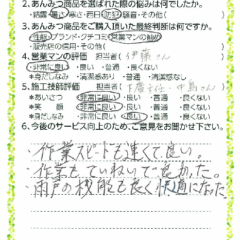 2.あんみつ商品を選ばれた際の悩みは何でしたか。
3.あんみつ商品をご購入頂いた最終判断は何ですか。
・性能・ブランド・クチコミ・営業マンの勧め
・販売店の信用・その他(
4.営業マンの評価 担当(伊藤さん
・非常に良い ・良い ・普通 ・良くない
*身だしなみ ・清潔感あり ・普通 ・清潔感なし
5.施工技術評価
*あいさつ ・非常に良い ・良い ・普通 ・良くない
*笑顔 ・非常に良い ・良い ・普通 ・良くない
*身だしなみ ・非常に良い ・良い ・普通 ・良くない
6.今後のサービス向上のため、ご意見をお聞かせ下さい。
・作業スピードも速くて良い。
・作業もていねいで良かった。
・雨戸の機能も良く快適になった。